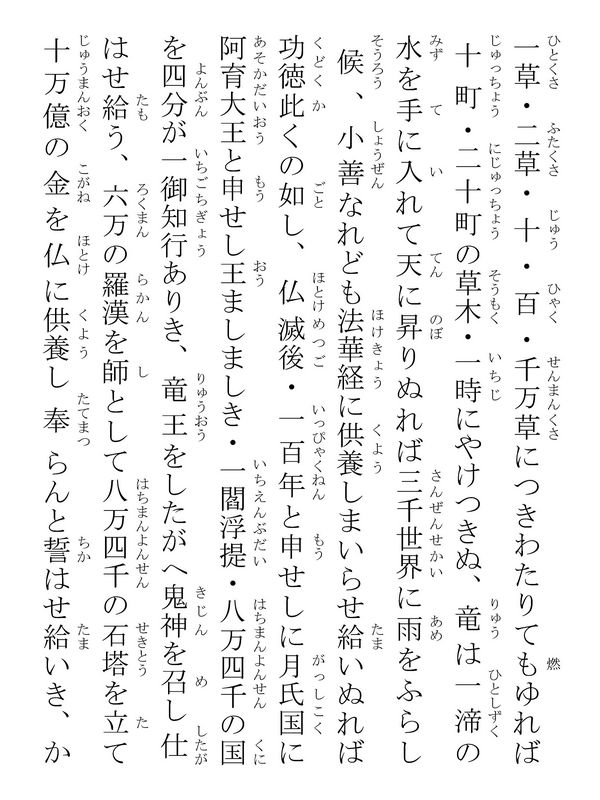 一草・二草・十・百・千万草につきわたりてもゆれば
十町・二十町の草木・一時にやけつきぬ、竜は一渧の
水を手に入れて天に昇りぬれば三千世界に雨をふらし
候、小善なれども法華経に供養しまいらせ給いぬれば
功徳此くの如し、仏滅後・一百年と申せしに月氏国に
阿育大王と申せし王ましましき・一閻浮提・八万四千の国
を四分が一御知行ありき、竜王をしたがへ鬼神を召し仕
はせ給う、六万の羅漢を師として八万四千の石塔を立て
十万億の金を仏に供養し奉らんと誓はせ給いき、か